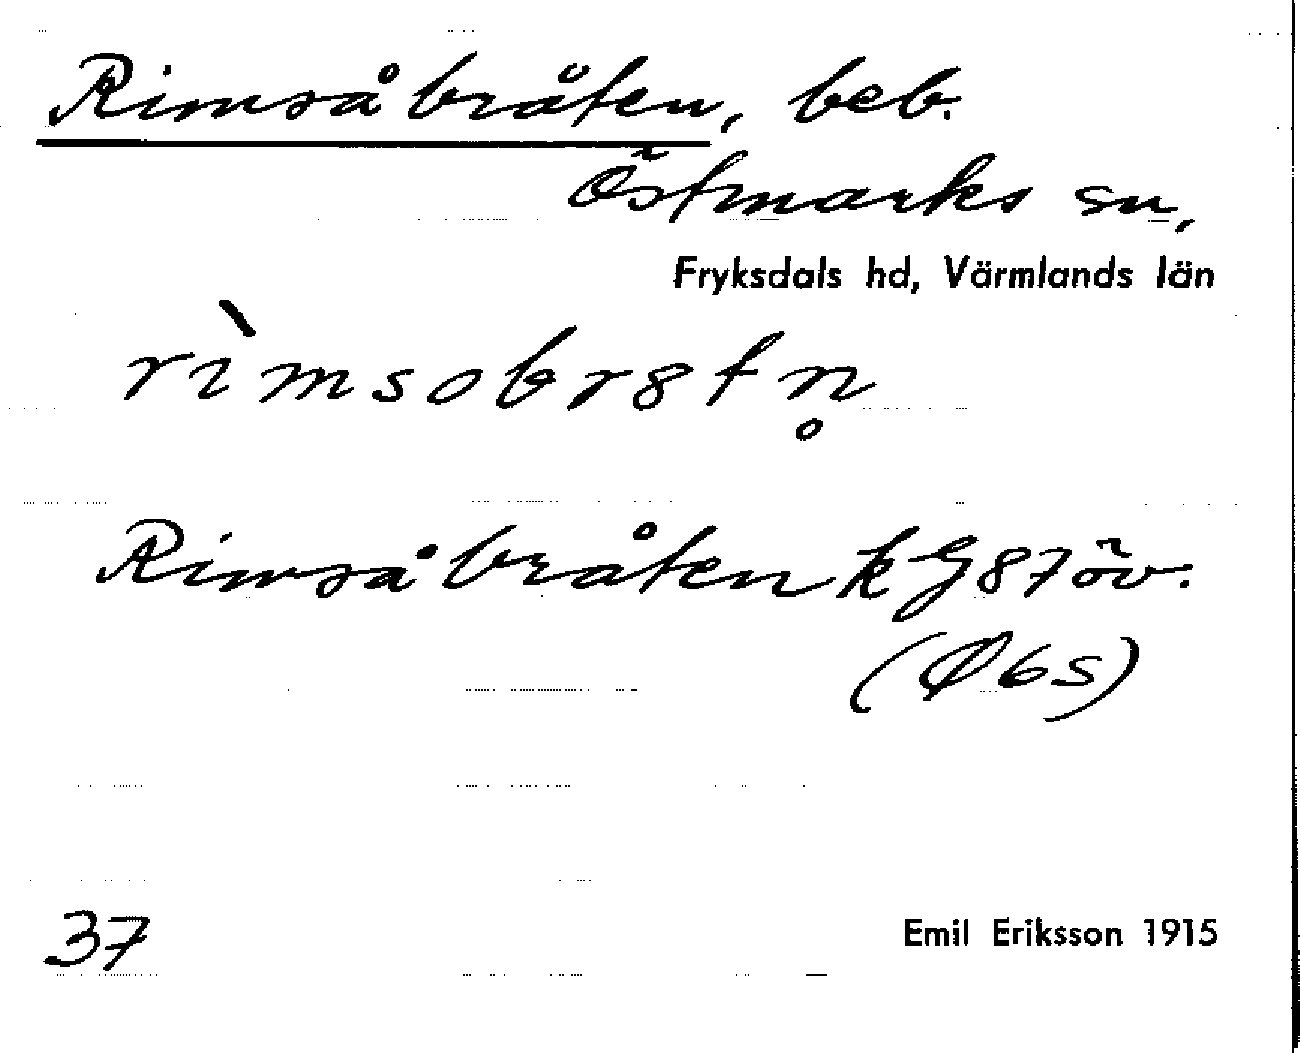 Rimsåbråten, beb.
Östmarks sn,
Fryksdals hd, Värmlands län
rìmsobr8tn̥
Rimsåbråten k G87öv.
(Ø6s)
37
Emil Eriksson 1915